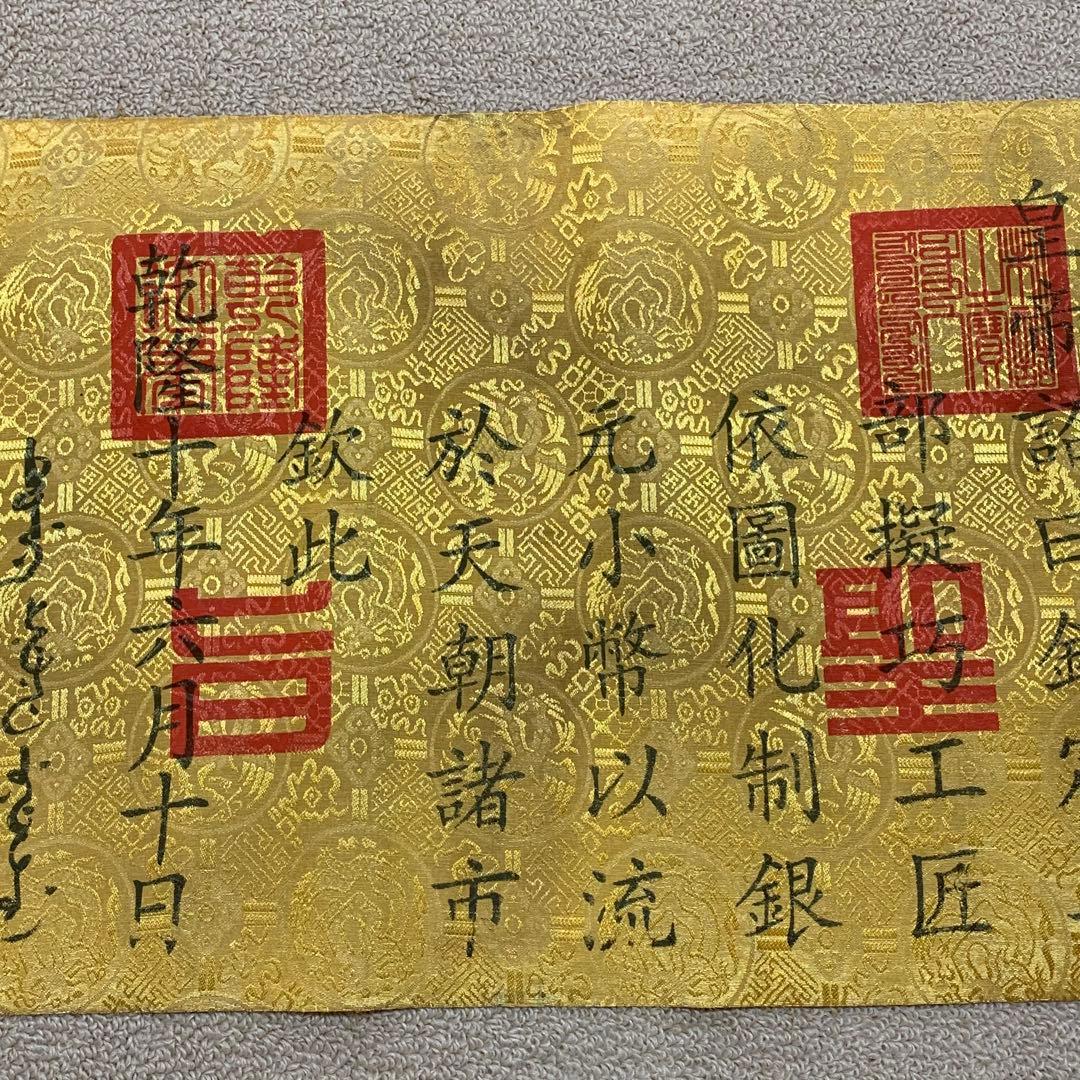 皇帝
詔曰
部擬巧工匠
依圖化制銀
元小幣以流
於天朝諸市
欽此
乾隆十年六月十日
聖旨